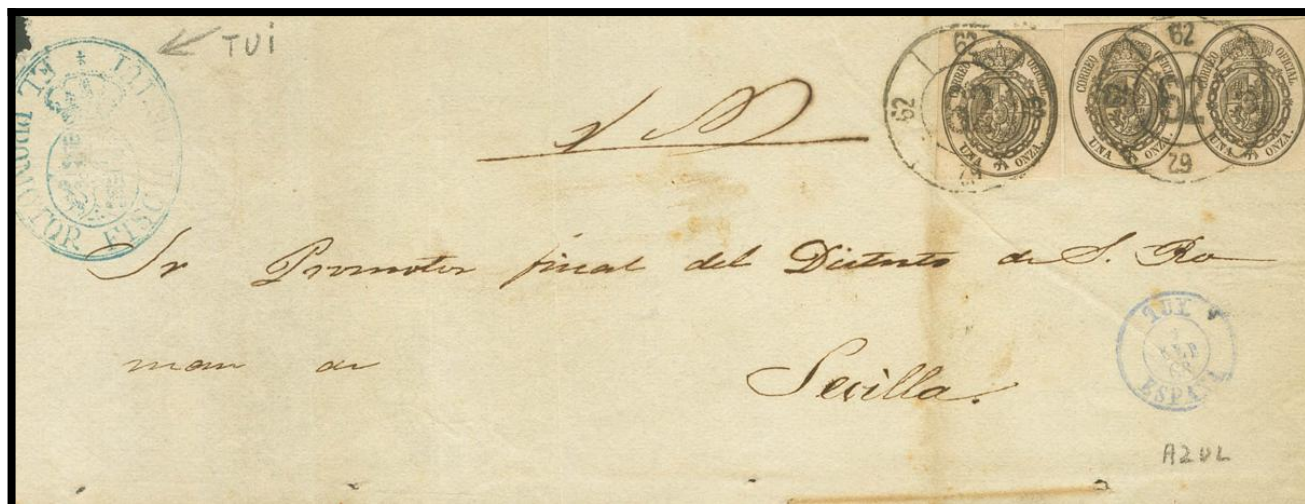 TUI
EL PROMOTOR FISCAL
CORREO OFICIAL
UNA ONZA.
CORREO OFICIAL
UNA ONZA.
CORREO OFICIAL
UNA ONZA.
62 62 62 62
62 62 62
S N
Sr Promotor fiscal del Distrito de S. Ro
man de
Sevilla.
TUY
7
SEP
68
ESPAÑA
AZUL